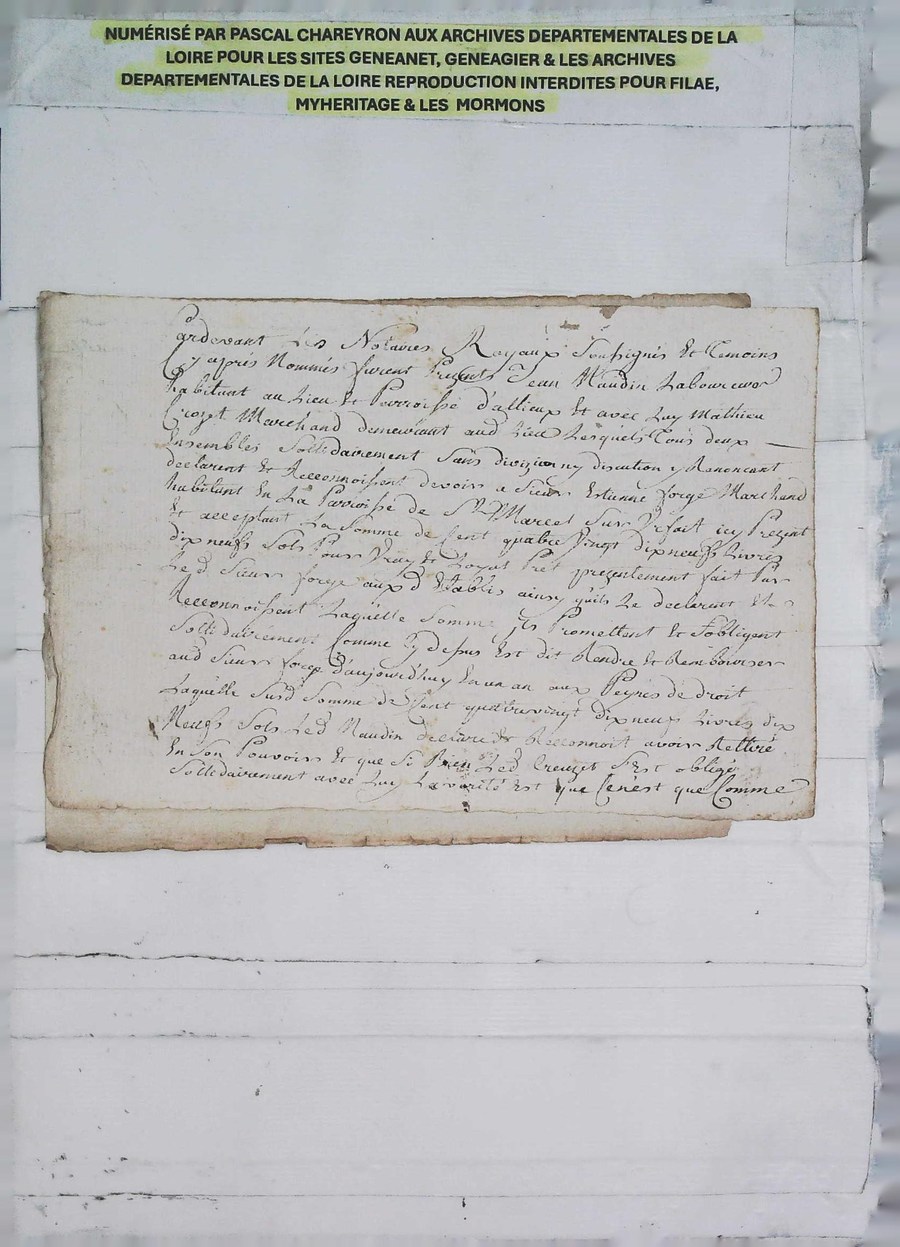 NUMÉRISÉ PAR PASCAL CHAREYRON AUX ARCHIVES DEPARTEMENTALES DE LA
LOIRE POUR LES SITES GENEANET, GENEAGIER & LES ARCHIVES
DEPARTEMENTALES DE LA LOIRE REPRODUCTION INTERDITES POUR FILAE,
MYHERITAGE & LES MORMONS
Pardevant Les Notaires Royaux Soussignés Et Temoins
Cy apres Nommés furent Presents Jean Naudin Laboureur
habitant au Lieu Et Parroisse d'allieux Et avec Luy Mathieu
Marchand demeurant aud Lieu Lesquels Tous deux
Ensembles Sollidairement Sans divizion ny discution y Renoncant
declarent Et Reconnoissent devoir a Sieur Estienne forge Marchand
habitant En La Parroisse de St Marcel Sur icy Prezent
Et acceptant La Somme de Cent quatre Vingt dix neufs Livres
dix neufs Sols Pour Vray Et Loyal Prêt prezentement fait Par
Led Sieur forge aux d Etablis ainsy quils Le declarent Et
Reconnoissent Laquelle Somme ils Promettent Et Sobligent
Sollidairement Comme Cy dessus Est dit Rendre Et Rembourser
aud Sieur forge d'aujourd'huy En un an aux Peynes de droit
Laquelle Susd Somme de Cent quatrevingt dix neufs Livres dix
Neufs Sols Led Naudin declare Et Reconnoit avoir Rettiré
En Son Pouvoir Et que Si Bien Led Creuzet S'Est obligé
Sollidairement avec Luy La verité Est que Cenest que Comme